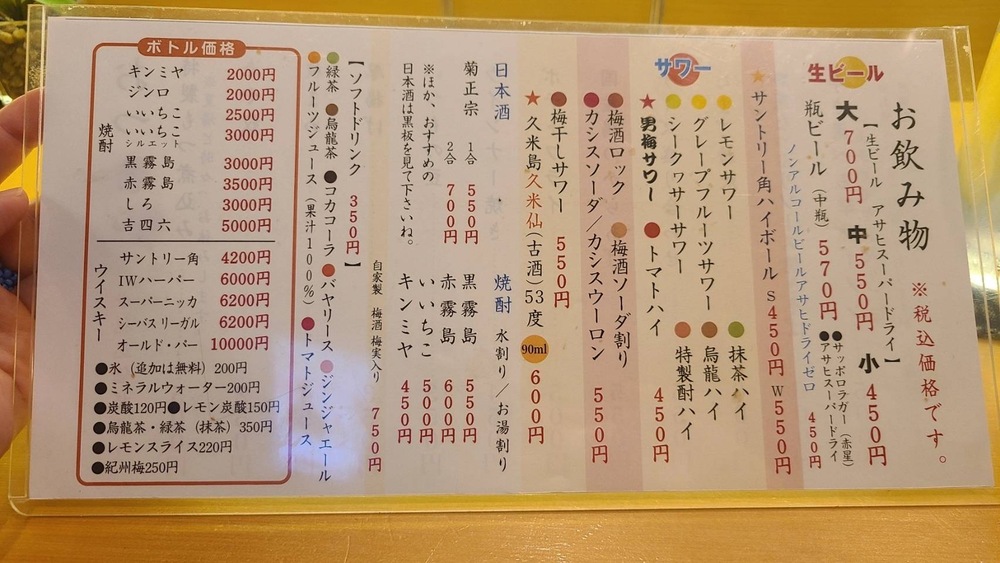 お飲み物
※税込価格です。
生ビール
【生ビール アサヒスーパードライ】
大 700円 中 550円 小 450円
瓶ビール(中瓶)570円
●サッポロラガー(赤星)
●アサヒスーパードライ
ノンアルコールビールアサヒドライゼロ 450円
★サントリー角ハイボール S450円 W550円
サワー
●レモンサワー ●抹茶ハイ
●グレープフルーツサワー ●烏龍ハイ
●シークヮサーサワー ●特製酎ハイ
★男梅サワー ●トマトハイ 450円
●梅酒ロック ●梅酒ソーダ割り
●カシスソーダ/カシスウーロン 550円
●梅干しサワー 550円
★久米島久米仙(古酒)53度 90ml 600円
日本酒
菊正宗 1合 550円
2合 700円
※ほか、おすすめの
日本酒は黒板を見て下さいね。
焼酎 水割り/お湯割り
黒霧島 550円
赤霧島 600円
いいちこ 500円
キンミヤ 450円
自家製 梅酒 梅実入り 750円
【ソフトドリンク 350円】
●緑茶 ●烏龍茶 ●コカコーラ ●バヤリース ●ジンジャエール
●フルーツジュース(果汁100%) ●トマトジュース
ボトル価格
焼酎
キンミヤ 2000円
ジンロ 2000円
いいちこ 2500円
いいちこ シルエット 3000円
黒霧島 3000円
赤霧島 3500円
しろ 3000円
吉四六 5000円
ウイスキー
サントリー角 4200円
IWハーパー 6000円
スーパーニッカ 6200円
シーバスリーガル 6200円
オールド・パー 10000円
●氷(追加は無料)200円
●ミネラルウォーター200円
●炭酸120円●レモン炭酸150円
●烏龍茶・緑茶(抹茶)350円
●レモンスライス220円
●紀州梅250円